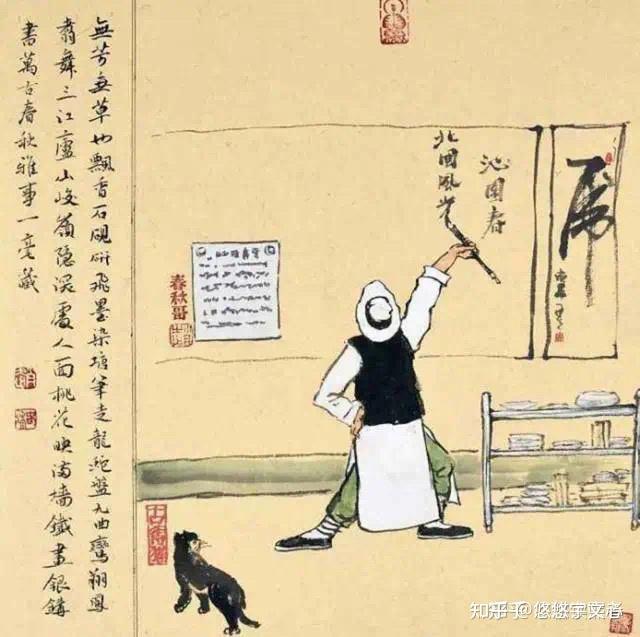 虎
沁園春
北國風光
春秋哥
無芳無草也飄香石硯研飛墨染塘筆走龍蛇盤九曲鸞翔鳳
翥舞三江廬山峻嶺隱深處人面桃花映滿墻鐵畫銀鉤
書萬古春秋雅事一毫藏
知乎 @悠悠宇文者